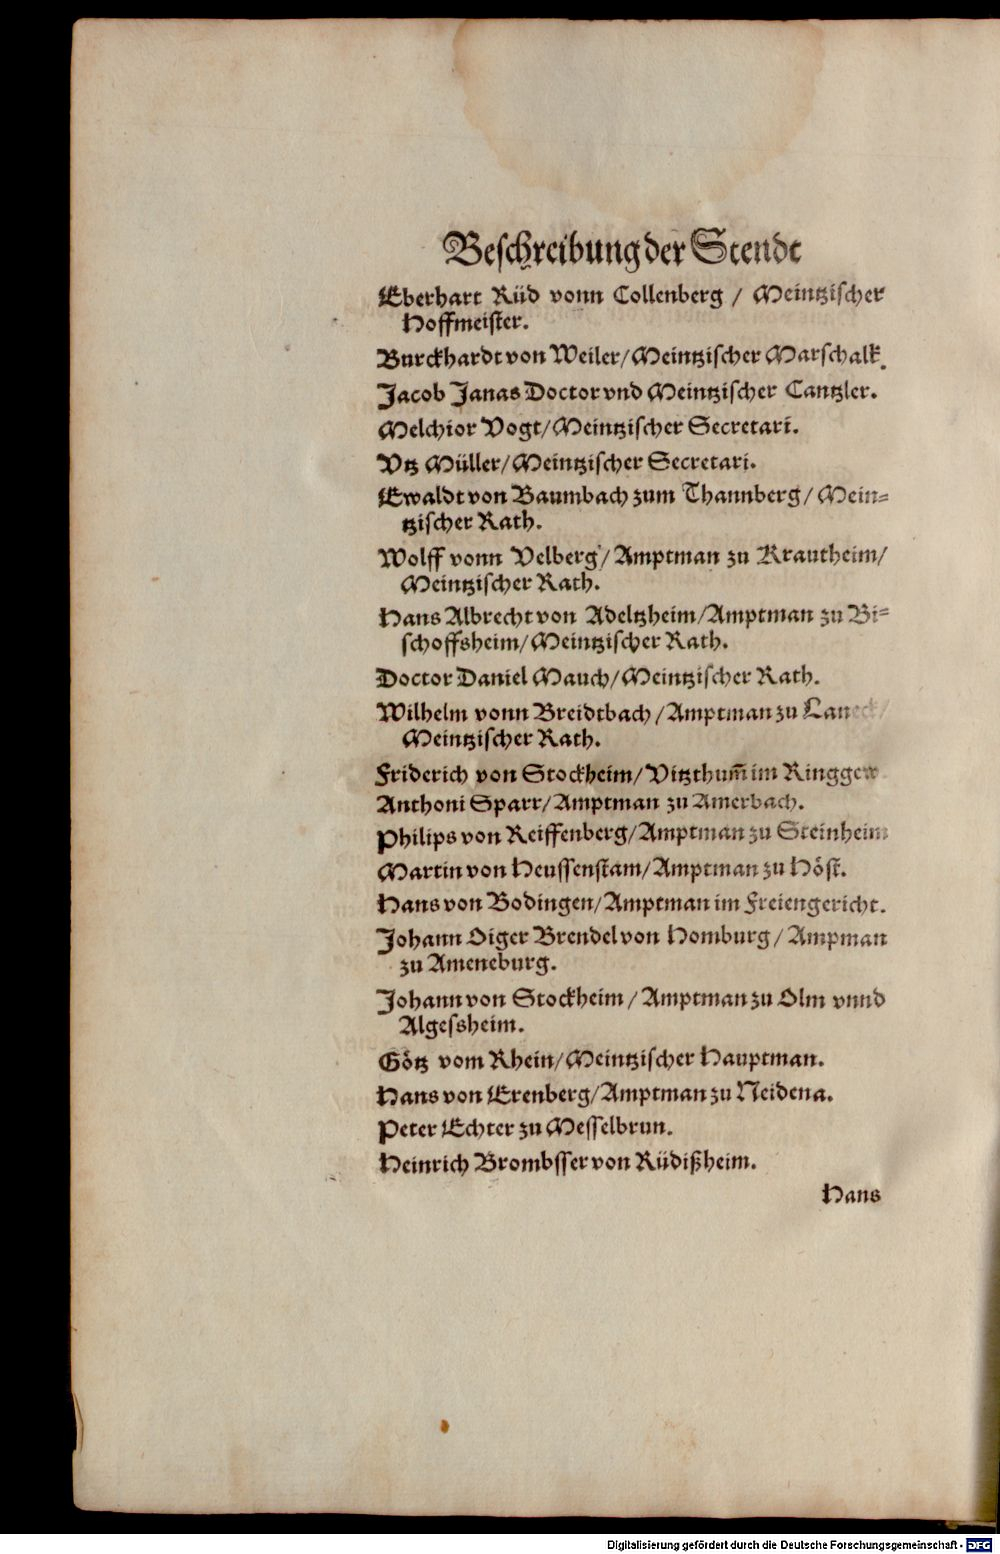 Beschreibung der Stendt
Eberhart Rüd vonn Collenberg / Meintzischer
Hoffmeister.
Burckhardt von Weiler/Meintzischer Marschalk.
Jacob Janas Doctor vnd Meintzischer Cantzler.
Melchior Vogt/Meintzischer Secretari.
Vtz Müller/Meintzischer Secretari.
Ewaldt von Baumbach zum Thannberg/Mein=
tzischer Rath.
Wolff vonn Velberg/Amptman zu Krautheim/
Meintzischer Rath.
Hans Albrecht von Adeltzheim/Amptman zu Bi=
schoffsheim/Meintzischer Rath.
Doctor Daniel Mauch/Meintzischer Rath.
Wilhelm vonn Breidtbach/Amptman zu Laneck/
Meintzischer Rath.
Friderich von Stockheim/Vitzthum̃ im Ringgew
Anthoni Sparr/Amptman zu Amerbach.
Philips von Reiffenberg/Amptman zu Steinheim
Martin von Heussenstam/Amptman zu Höst.
Hans von Bodingen/Amptman im Freiengericht.
Johann Oiger Brendel von Homburg/Ampman
zu Ameneburg.
Johann von Stockheim/Amptman zu Olm vnnd
Algessheim.
Götz vom Rhein/Meintzischer Hauptman.
Hans von Erenberg/Amptman zu Neidena.
Peter Echter zu Messelbrun.
Heinrich Brombsser von Rüdißheim.
Hans
Digitalisierung gefördert durch die Deutsche Forschungsgemeinschaft - DFG